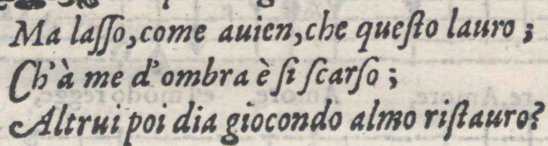 Ma lasso, come auien, che questo lauro;
Ch'à me d'ombra è si scarso;
Altrui poi dia giocondo almo ristauro?